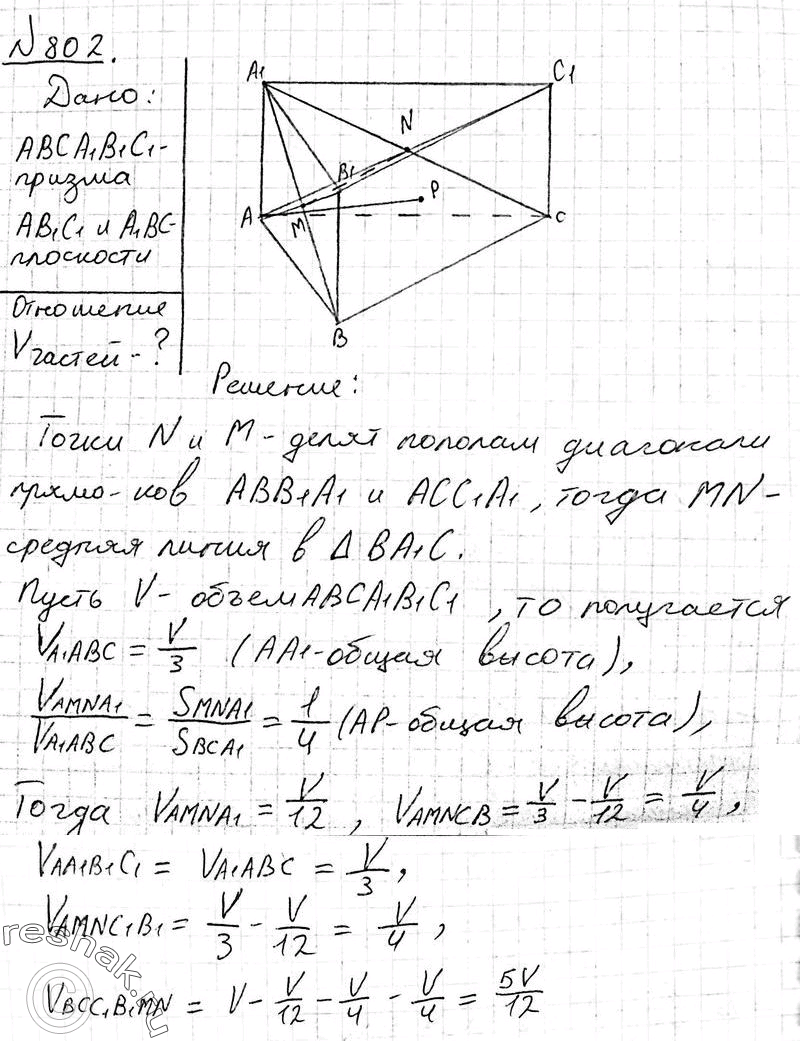 №802.
Дано:
ABCA1B1C1-
призма
AB1C1 и A1BC-
плоскости
Отношение
Vчастей-?
A1
C1
N
B1
P
A
M
C
B
Решение:
Точки N и M - делят пополам диагонали
прямо-ков ABB1A1 и ACC1A1, тогда MN-
средняя линия в Δ BA1C.
Пусть V- объем ABCA1B1C1, то получается
VA1ABC = V/3 (AA1-общая высота),
VAMNA1/VA1ABC = SMNA1/SBCA1 = 1/4 (AP-общая высота),
Тогда VAMNA1 = V/12, VAMNCB = V/3 - V/12 = V/4,
VAA1B1C1 = VA1ABC = V/3,
VAMNC1B1 = V/3 - V/12 = V/4,
VBCC1B1MN = V - V/12 - V/4 - V/4 = 5V/12
reshak.ru
©